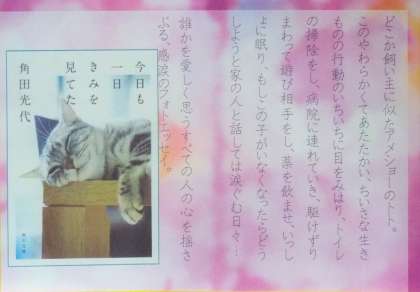 どこか飼い主に似たアメショーのトト。
このやわらかくてあたたかい、ちいさな生き
ものの行動のいちいちに目をみはり、トイレ
の掃除をし、病院に連れていき、駆けずり
まわって遊び相手をし、薬を飲ませ、いっし
ょに眠り、もしこの子がいなくなったらどう
しようと家の人と話しては涙ぐむ日々…
誰かを愛しく思うすべての人の心を揺さ
ぶる、感涙のフォトエッセイ。
今日も
一日
きみを
見てた
角田光代